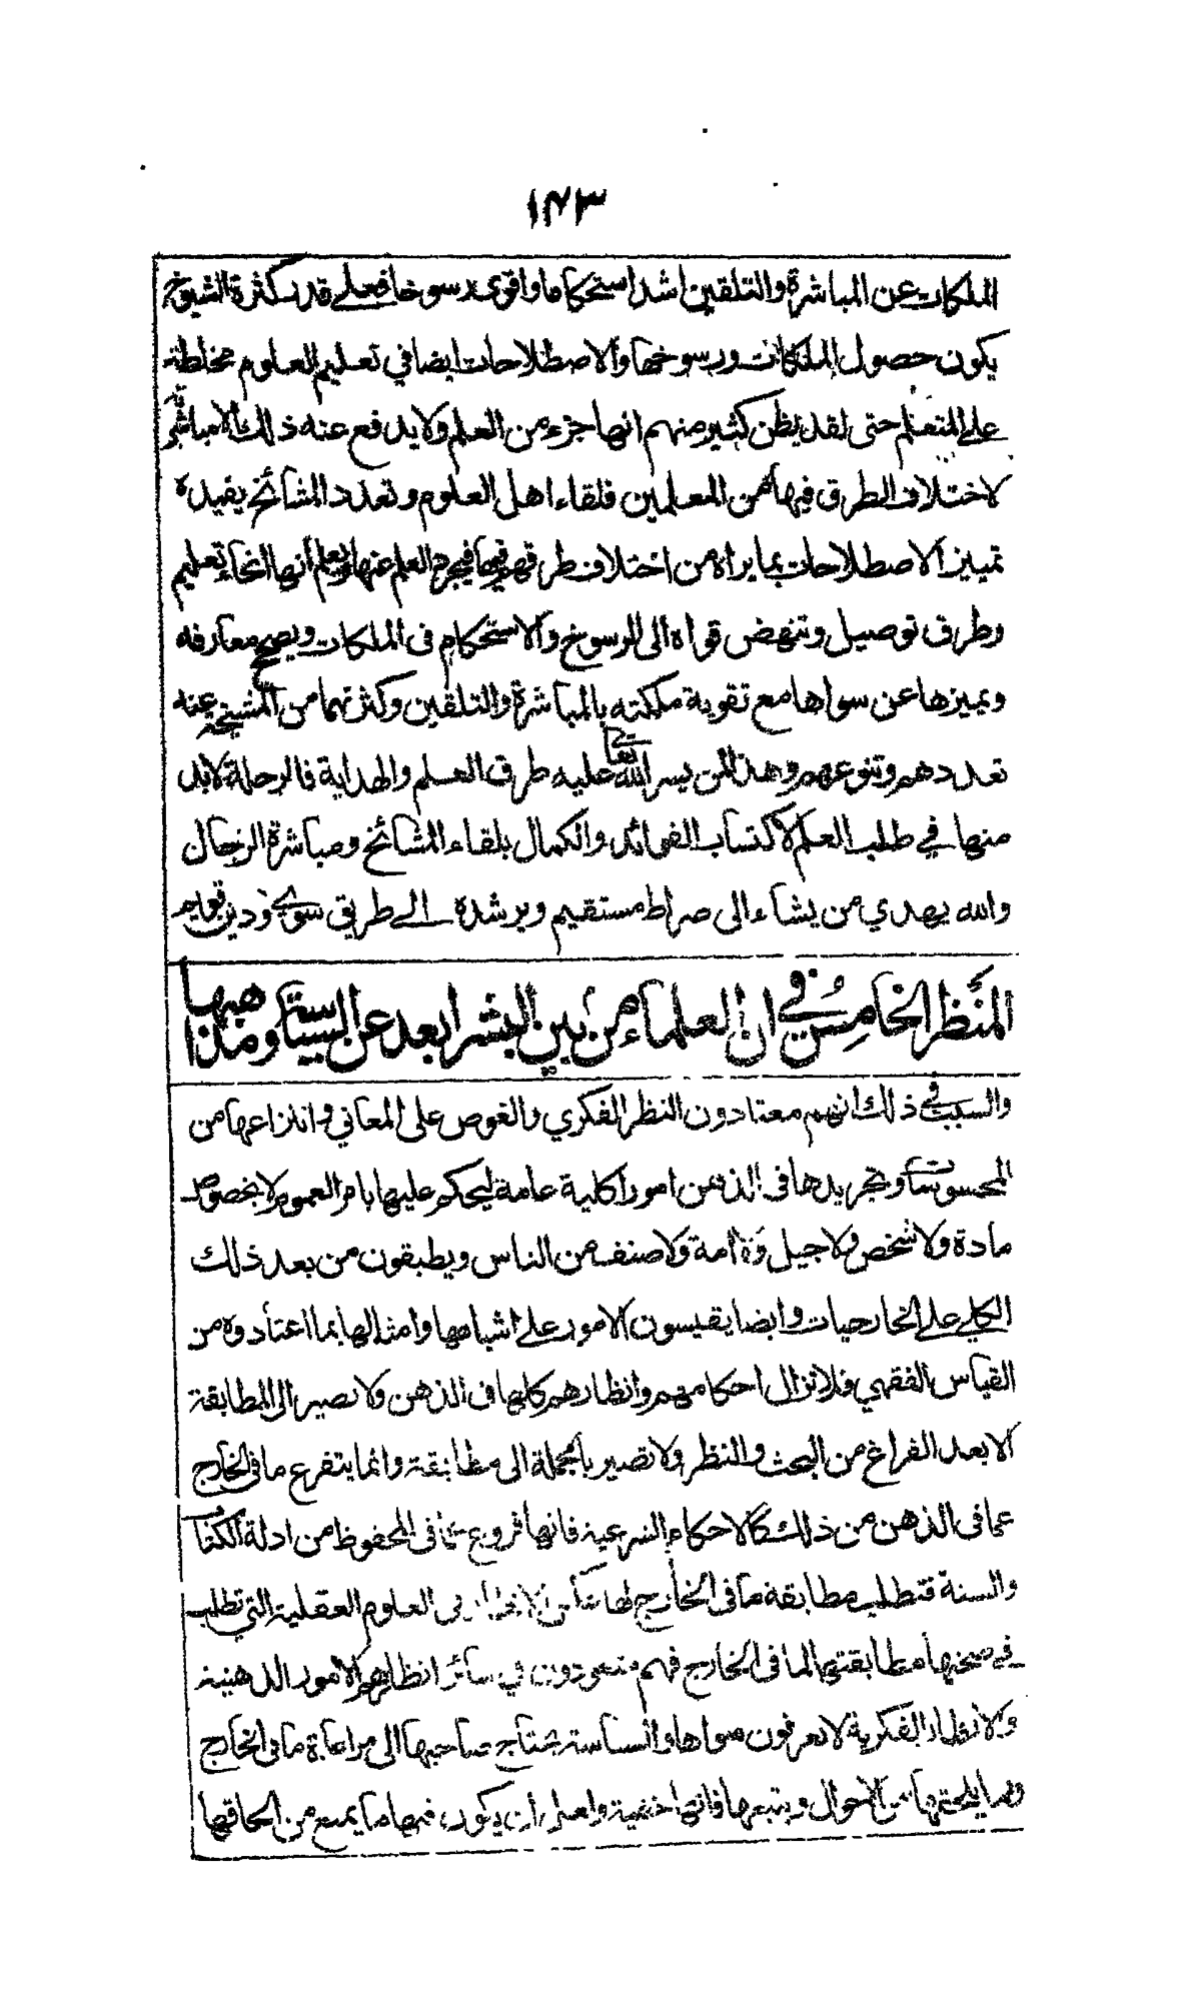 ١٤٣
الملكات عن المباشرة والتلقين اشد استحكاما واقوى رسوخا فعلى قدر كثرة الشيوخ
يكون حصول الملكات ورسوخها والاصطلاحات ايضا في تعليم العلوم مخلطة
على المتعلم حتى لقد يظن كثير منهم انها جزء من العلم ولا يدفع عنه ذلك الا مباشرته
لاختلاف الطرق فيها من المعلمين فلقاء اهل العلوم وتعدد المشائخ يفيده
تمييز الاصطلاحات بما يراه من اختلاف طرقهم فيها فيجرد العلم عنها ويعلم انها انحاء تعليم
وطرق توصيل وتنهض قواه الى الرسوخ والاستحكام فى الملكات ويصحح معارفه
ويميزها عن سواها مع تقوية ملكته بالمباشرة والتلقين وكثرتهما من المشيخة عند
تعددهم وتنوعهم وهذا لمن يسر الله تعالى عليه طرق العلم والهداية فالرحلة لابد
منها في طلب العلم لاكتساب الفوائد والكمال بلقاء المشائخ ومباشرة الرجال
والله يهدي من يشاء الى صراط مستقيم ويرشده الى طريق سوي ودين قويم
المنظر الخامس في ان العلماء من بين البشر ابعد عن السياسة ومذاهبها
والسبب في ذلك انهم معتادون النظر الفكري والغوص على المعاني وانتزاعها من
المحسوسات وتجريدها فى الذهن امورا كلية عامة ليحكم عليها بامر العموم لا بخصوص
مادة ولا شخص ولا جيل ولا امة ولا صنف من الناس ويطبقون من بعد ذلك
الكلي على الخارجيات وايضا يقيسون الامور على اشباهها وامثالها بما اعتادوه من
القياس الفقهي فلا تزال احكامهم وانظارهم كلها فى الذهن ولا تصير الى المطابقة
الا بعد الفراغ من البحث والنظر ولا تصير بالجملة الى مطابقة وانما يتفرع ما فى الخارج
عما فى الذهن من ذلك كالاحكام الشرعية فانها فروع عما فى المحفوظ من ادلة الكتاب
والسنة فتطلب مطابقة ما فى الخارج لها عكس الانظار فى العلوم العقلية التي تطلب
في صحتها مطابقتها لما فى الخارج فهم متعودون في سائر انظارهم الامور الذهنية
والانظار الفكرية لا يعرفون سواها والسياسة يحتاج صاحبها الى مراعاة ما فى الخارج
وما يلحقها من الاحوال ويتبعها فانها خفية ولعل ان يكون فيها ما يمنع من الحاقها